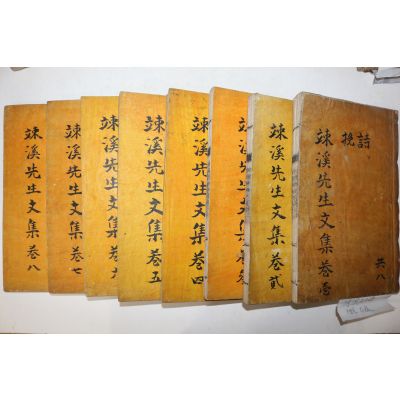 詩
挽
竦溪先生文集卷壹
共八
竦溪先生文集卷貳
竦溪先生文集卷參
竦溪先生文集卷四
竦溪先生文集卷五
竦溪先生文集卷六
竦溪先生文集卷七
竦溪先生文集卷八